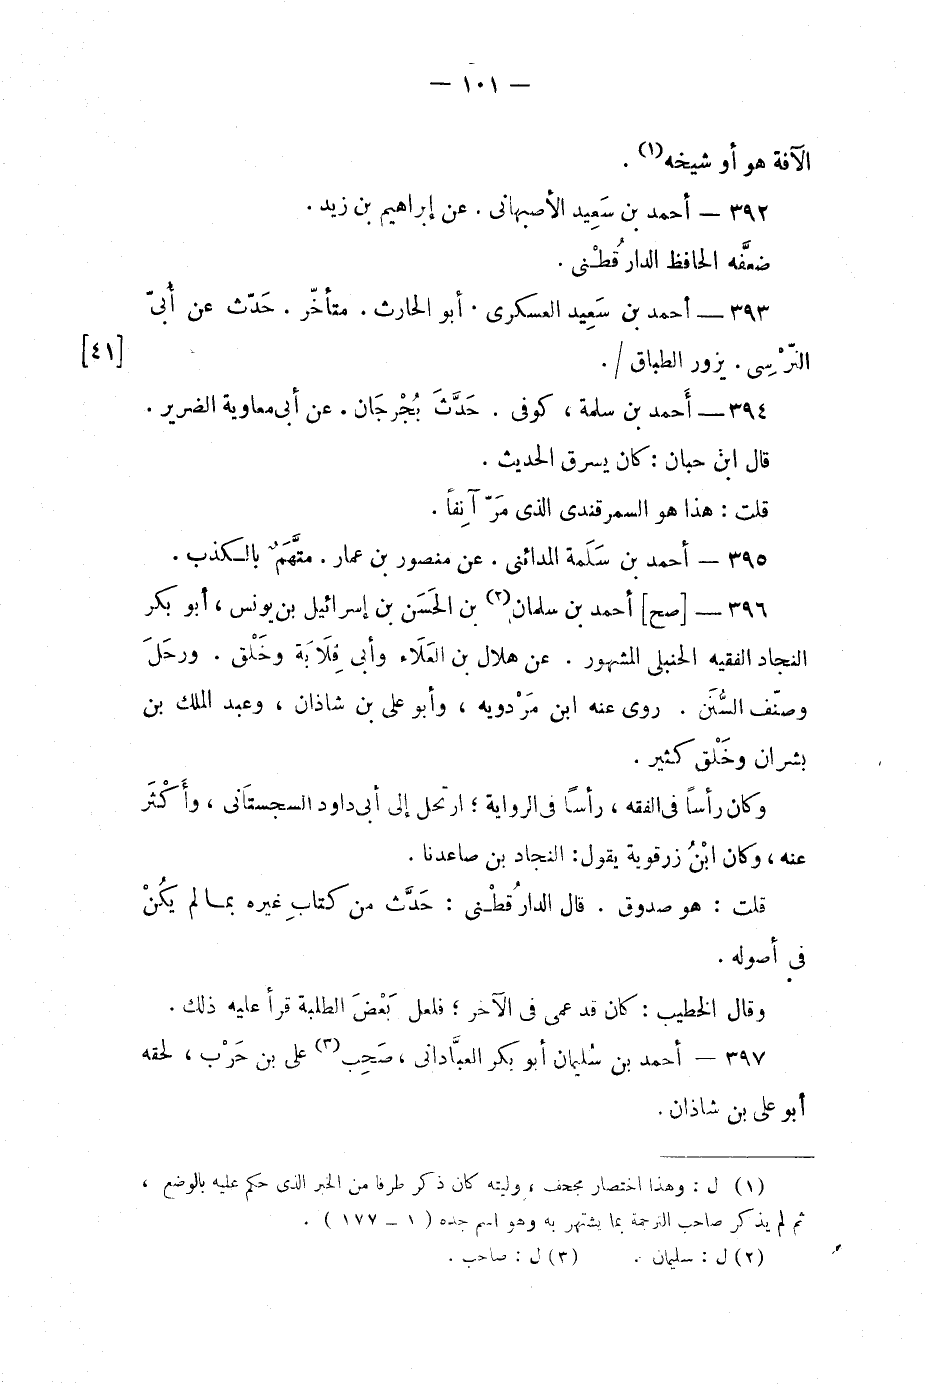 — ١٠١ —
الآفة هو أو شيخه(١) .
٣٩٢ — أحمد بن سَعِيد الأصبهانى . عن إبراهيم بن زيد .
ضعَّفه الحافظ الدارقُطْنى .
٣٩٣ — أحمد بن سَعِيد العسكرى . أبو الحارث . متأخّر . حَدّث عن أُبىّ
النّرْسِى . يزور الطباق / . [٤١]
٣٩٤ — أَحمد بن سلمة ، كوفى . حَدَّثَ بُجُرْجَان . عن أبى معاوية الضرير .
قال ابن حبان : كان يسرق الحديث .
قلت : هذا هو السمرقندى الذى مَرّ آنِفاً .
٣٩٥ — أحمد بن سَلَمة المدائنى . عن منصور بن عمار . متَّهَمٌ بالكذب .
٣٩٦ — [صح] أحمد بن سلمان(٢) بن الحَسَن بن إسرائيل بن يونس ، أبو بكر
النجاد الفقيه الحنبلى المشهور . عن هلال بن العَلَاء وأبى قِلَابَة وخَلْق . ورحَلَ
وصنّف السُّنَن . روى عنه ابن مَرْدويه ، وأبو على بن شاذان ، وعبد الملك بن
بشران وخَلْق كثير .
وكان رأساً فى الفقه ، رأسًا فى الرواية ؛ ارتحل إلى أبى داود السجستَانى ، وأَكْثَر
عنه ، وكان ابْنُ زرقوية يقول : النجاد بن صاعدنا .
قلت : هو صدوق . قال الدارقُطْنى : حَدَّث من كتابِ غيره بما لم يكُنْ
فى أصوله .
وقال الخطيب : كان قد عمى فى الآخر ؛ فلعل بَعْضَ الطلبة قرأ عليه ذلك .
٣٩٧ — أحمد بن سُليمان أبو بكر العبَّادانى ، صَحِب(٣) على بن حَرْب ، لحقه
أبو على بن شاذان .
(١) ل : وهذا اختصار مجحف ، وليته كان ذكر طرفا من الخبر الذى حكم عليه بالوضع ،
ثم لم يذكر صاحب الترجمة بما يشتهر به وهو اسم جده ( ١ – ١٧٧ ) .
(٢) ل : سليمان . (٣) ل : صاحب .